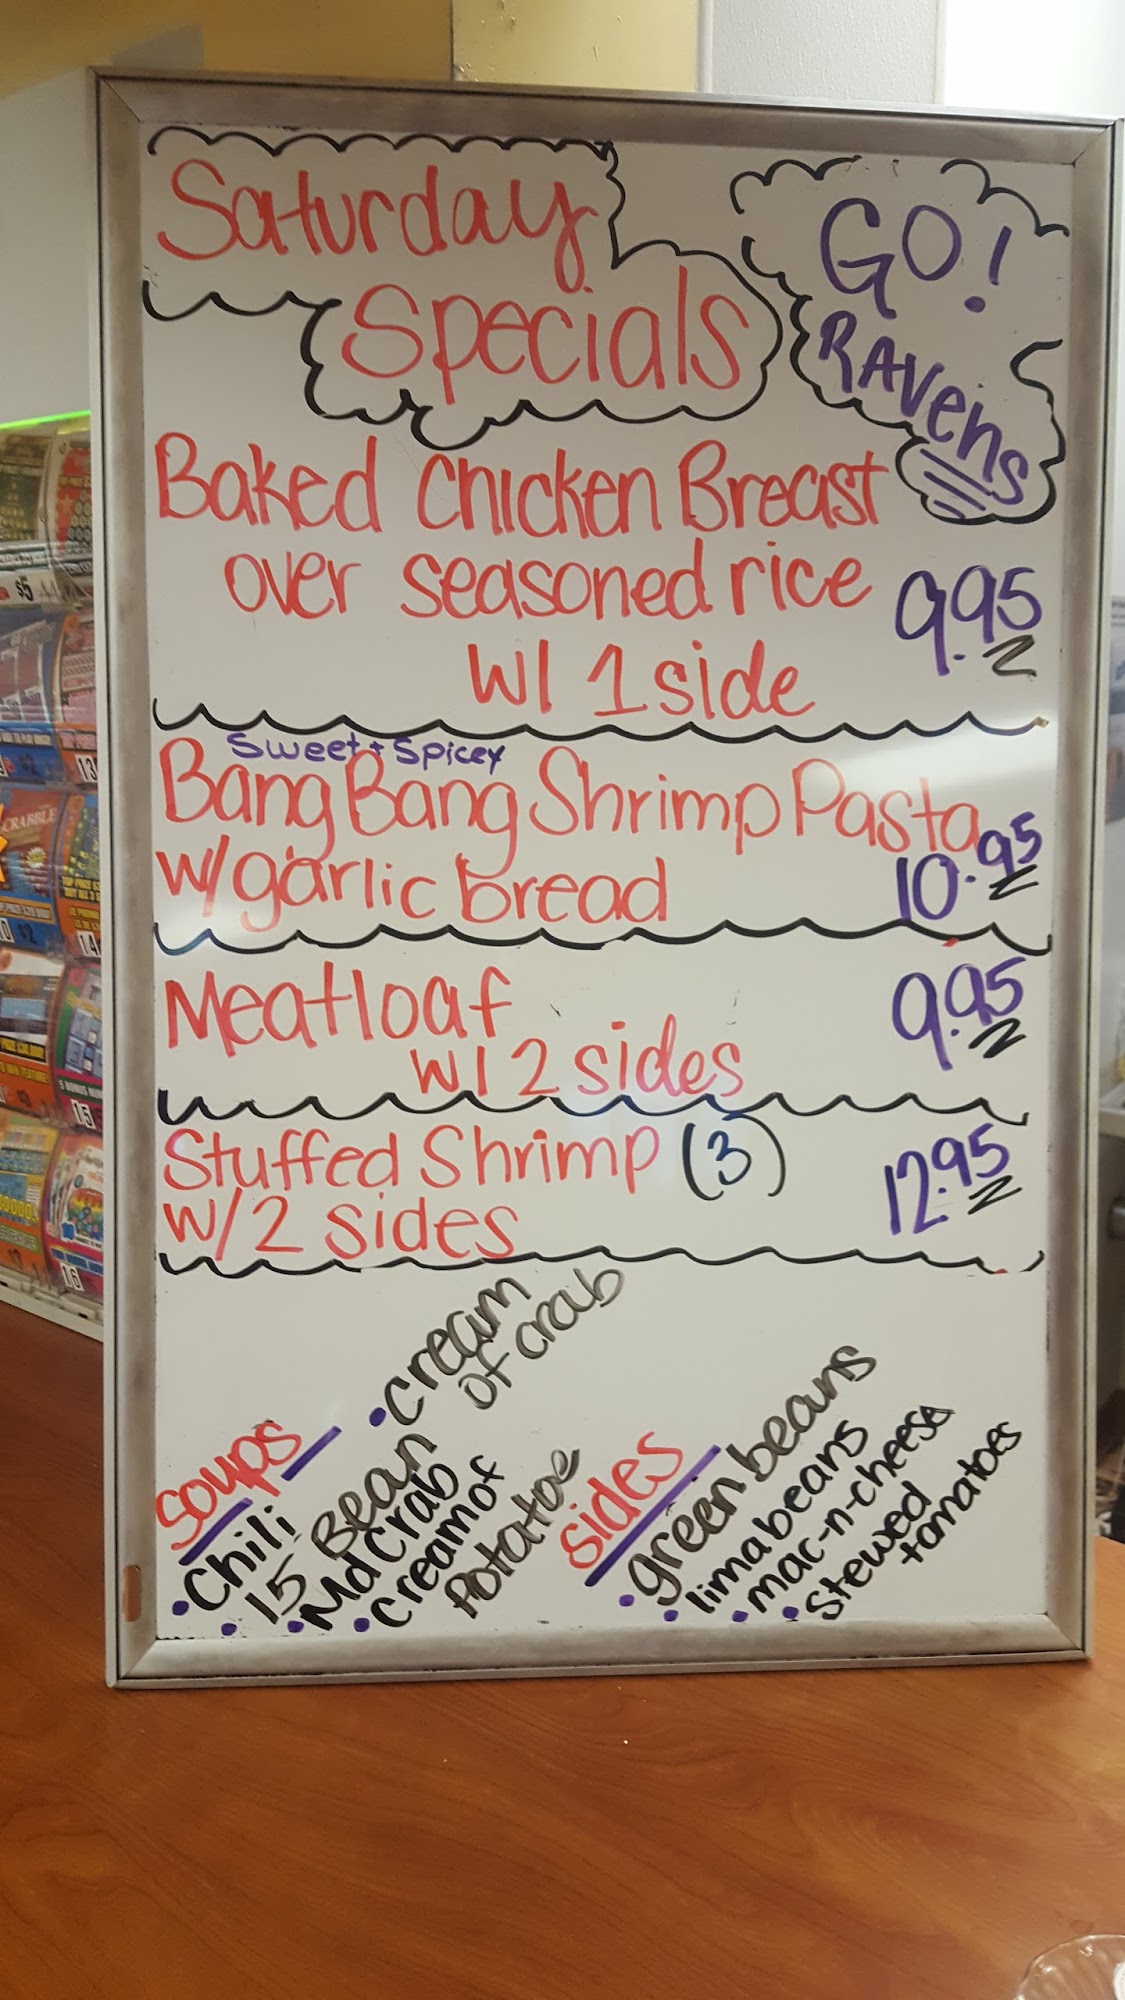 Saturday
Specials
GO!
RAVens
Baked Chicken Breast
over seasoned rice
W/ 1 side
9.95
Sweet + Spicey
Bang Bang Shrimp Pasta
w/garlic bread
10.95
Meatloaf
W/ 2 sides
9.95
Stuffed Shrimp (3)
w/2 sides
12.95
Soups
• Chili
• 15 Bean
• Md Crab
• Cream of
Potatoe
• Cream
of crab
Sides
• green beans
• lima beans
• mac-n-cheese
• Stewed
tomatoes
$5
13
CRABBLE
$2
14
15
16